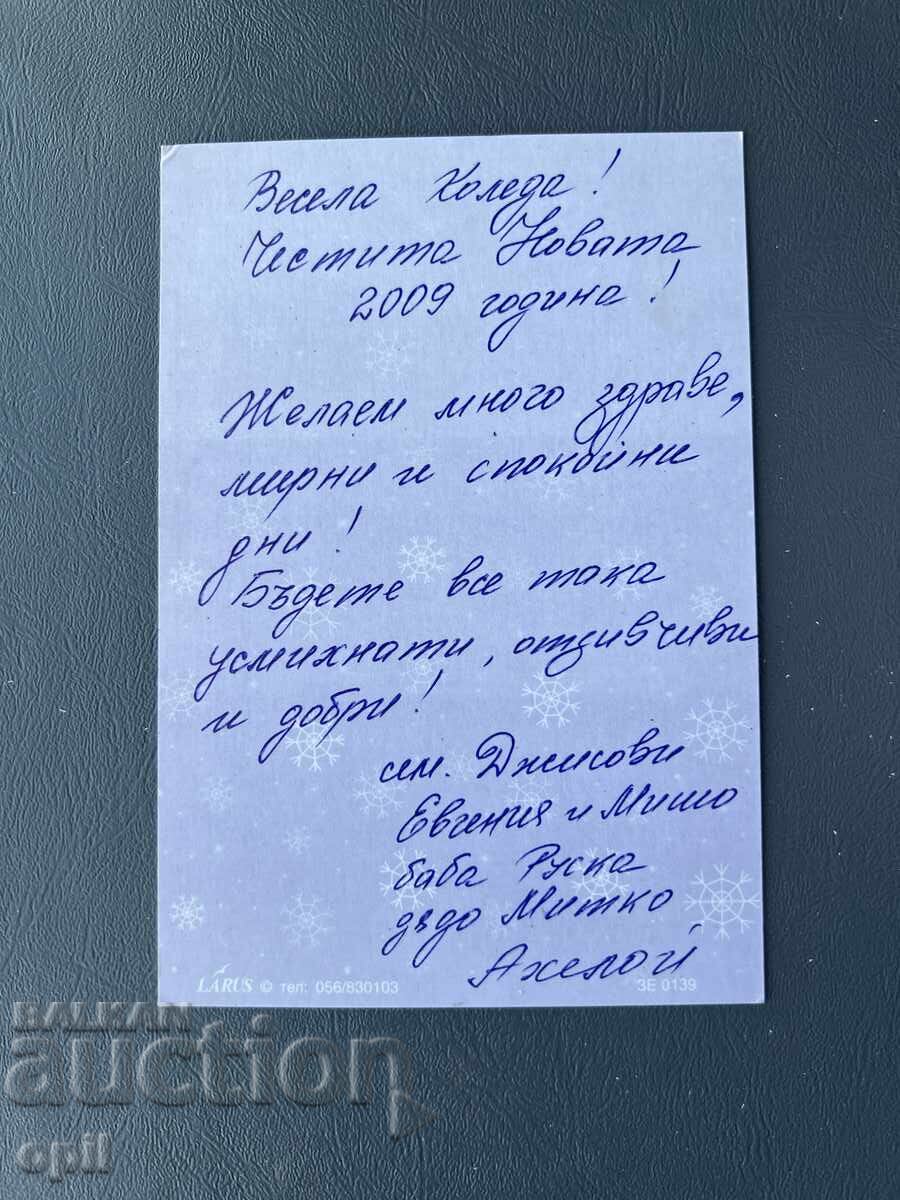 Весела Коледа!
Честита Новата
2009 година!
Желаем много здраве,
мирни и спокойни
дни!
Бъдете все така
усмихнати, отзивчиви
и добри!
сем. Джисови
Евгения и Мишо
баба Руска
дядо Митко
Ахелой
LARUS © тел: 056/830103
ЗЕ 0139
BALKAN
auction
opil